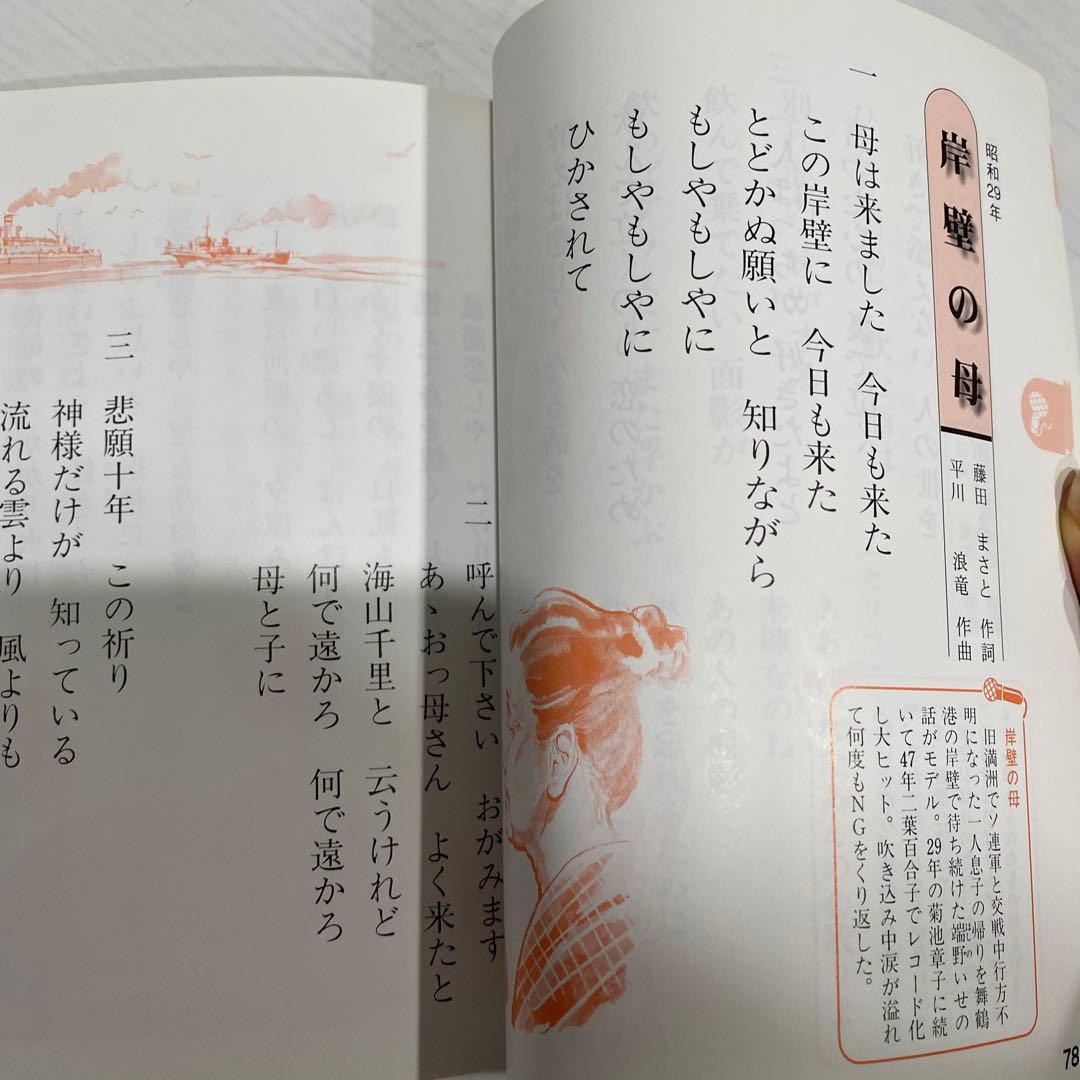 昭和29年
岸壁の母
藤田 まさと 作詞
平川 浪竜 作曲
岸壁の母
旧満洲でソ連軍と交戦中行方不
明になった一人息子の帰りを舞鶴
港の岸壁で待ち続けた端野いせの
話がモデル。29年の菊池章子に続
いて47年二葉百合子でレコード化
し大ヒット。吹き込み中涙が溢れ
て何度もNGをくり返した。
はしの
一 母は来ました 今日も来た
この岸壁に 今日も来た
とどかぬ願いと 知りながら
もしやもしやに
もしやもしやに
ひかされて
78
二 呼んで下さい おがみます
あゝおっ母さん よく来たと
海山千里と 云うけれど
何で遠かろ 何で遠かろ
母と子に
三 悲願十年 この祈り
神様だけが 知っている
流れる雲より 風よりも